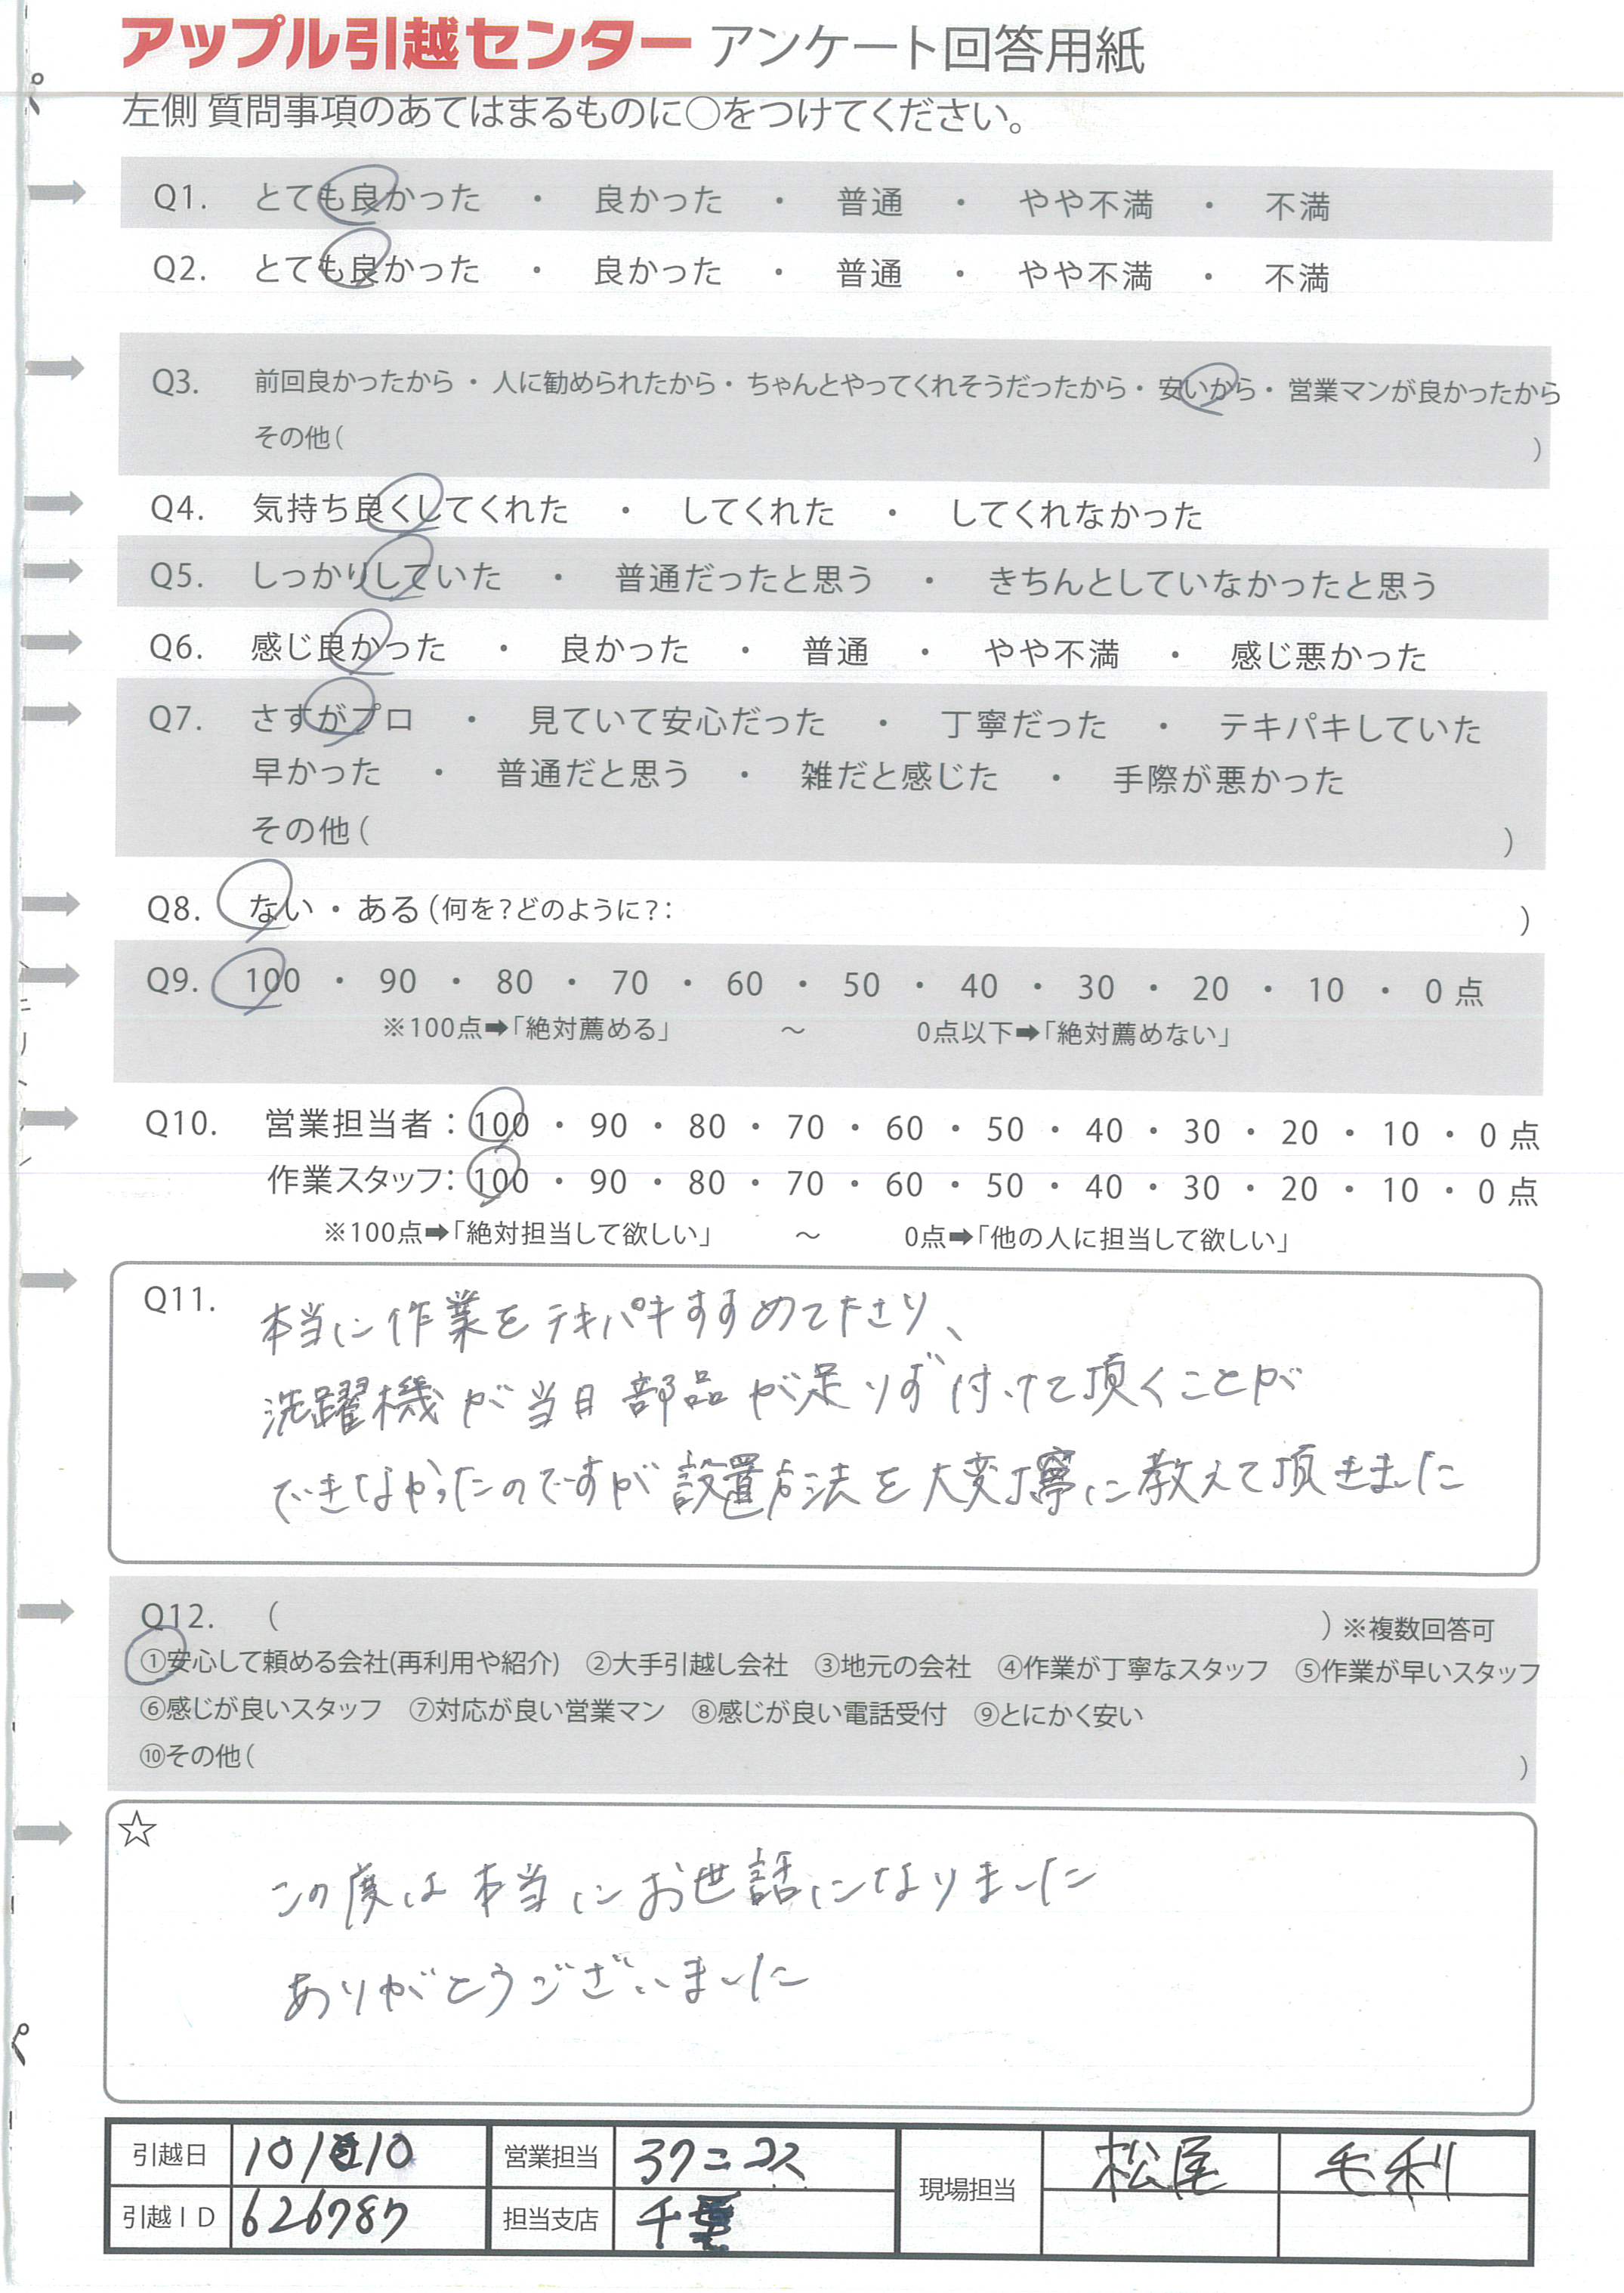 アップル引越センター アンケート回答用紙
左側 質問事項のあてはまるものに○をつけてください。
Q1. とても良かった ・ 良かった ・ 普通 ・ やや不満 ・ 不満
Q2. とても良かった ・ 良かった ・ 普通 ・ やや不満 ・ 不満
Q3. 前回良かったから ・ 人に勧められたから ・ ちゃんとやってくれそうだったから ・ 安いから ・ 営業マンが良かったから
その他( )
Q4. 気持ち良くしてくれた ・ してくれた ・ してくれなかった
Q5. しっかりしていた ・ 普通だったと思う ・ きちんとしていなかったと思う
Q6. 感じ良かった ・ 良かった ・ 普通 ・ やや不満 ・ 感じ悪かった
Q7. さすがプロ ・ 見ていて安心だった ・ 丁寧だった ・ テキパキしていた
早かった ・ 普通だと思う ・ 雑だと感じた ・ 手際が悪かった
その他( )
Q8. ない ・ ある(何を?どのように?: )
Q9. 100 ・ 90 ・ 80 ・ 70 ・ 60 ・ 50 ・ 40 ・ 30 ・ 20 ・ 10 ・ 0 点
※100点➡「絶対薦める」 ～ 0点以下➡「絶対薦めない」
Q10. 営業担当者：100 ・ 90 ・ 80 ・ 70 ・ 60 ・ 50 ・ 40 ・ 30 ・ 20 ・ 10 ・ 0 点
作業スタッフ：100 ・ 90 ・ 80 ・ 70 ・ 60 ・ 50 ・ 40 ・ 30 ・ 20 ・ 10 ・ 0 点
※100点➡「絶対担当して欲しい」 ～ 0点➡「他の人に担当して欲しい」
Q11. 本当に作業をテキパキすすめて下さり、
洗濯機が当日部品が足りず付けて頂くことが
できなかったのですが設置方法を大変丁寧に教えて頂きました
Q12. ( ) ※複数回答可
①安心して頼める会社(再利用や紹介) ②大手引越し会社 ③地元の会社 ④作業が丁寧なスタッフ ⑤作業が早いスタッフ
⑥感じが良いスタッフ ⑦対応が良い営業マン ⑧感じが良い電話受付 ⑨とにかく安い
⑩その他( )
☆
この度は本当にお世話になりました
ありがとうございました
引越日 10/10 営業担当 現場担当 松尾 毛利
引越ID 626787 担当支店 千葉